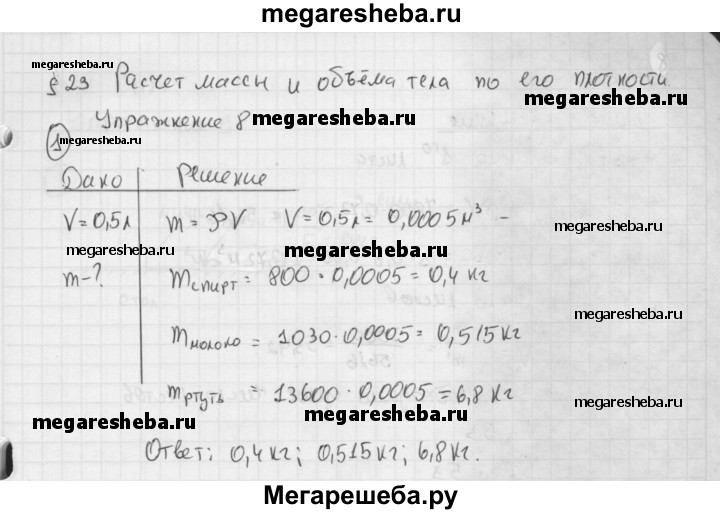 megaresheba.ru
megaresheba.ru
§ 23 Расчет массы и объёма тела по его плотности.
megaresheba.ru
Упражнение 8 megaresheba.ru
1 megaresheba.ru
Дано Решение
V = 0,5л m = ρV V = 0,5л = 0,0005 м³
megaresheba.ru
megaresheba.ru
m - ? mспирт = 800 · 0,0005 = 0,4 кг
megaresheba.ru
mмолоко = 1030 · 0,0005 = 0,515 кг
mртуть = 13600 · 0,0005 = 6,8 кг
megaresheba.ru
megaresheba.ru
megaresheba.ru
Ответ: 0,4 кг; 0,515 кг; 6,8 кг.
megaresheba.ru
Мегарешеба.ру